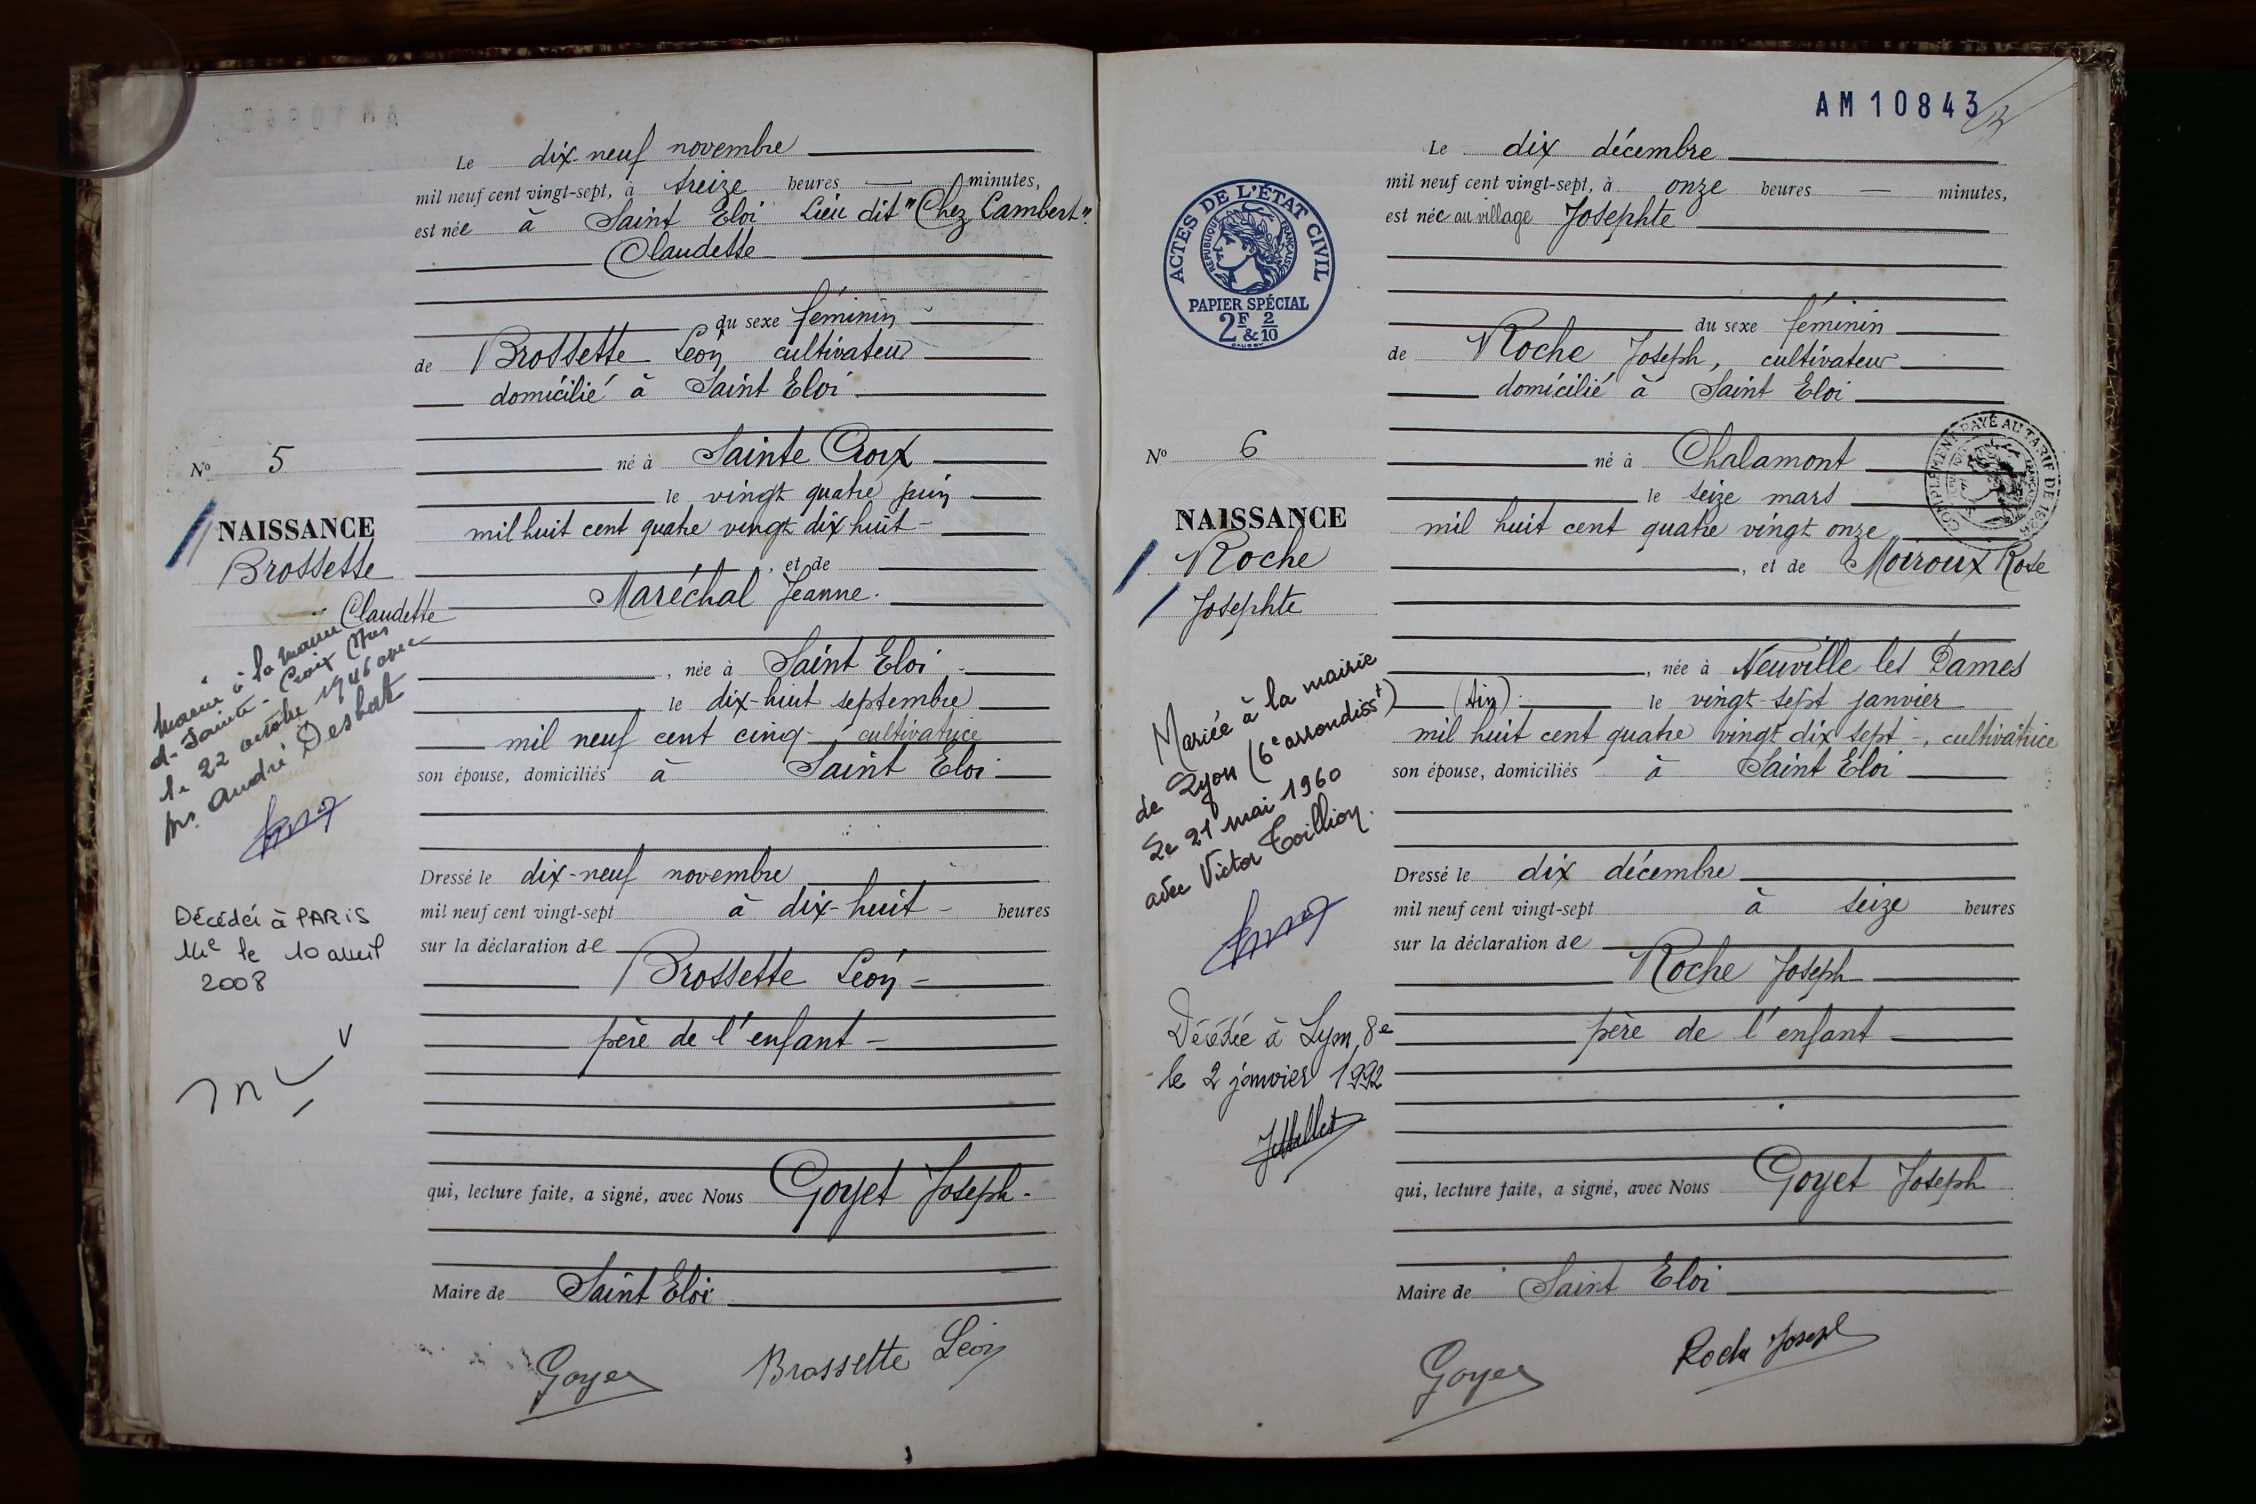 Le dix-neuf novembre
mil neuf cent vingt-sept, à treize heures — minutes,
est née à Saint Eloi Lieu dit "Chez Lambert".
Claudette
du sexe féminin
de Brossette Léon cultivateur
domicilié à Saint Eloi
N° 5
né à Sainte Croix
le vingt quatre juin
NAISSANCE
mil huit cent quatre vingt dix huit
Brossette
, et de
Claudette
Maréchal Jeanne.
Mariée à la mairie
d. Sainte-Croix
le 22 octobre 1946 avec
Mr. André Desbat
, née à Saint Eloi
le dix-huit septembre
mil neuf cent cinq, cultivatrice
son épouse, domiciliés à Saint Eloi
Dressé le dix-neuf novembre
mil neuf cent vingt-sept à dix-huit heures
sur la déclaration de
Brossette Léon
père de l'enfant
Décédé à PARIS
14e le 10 avril
2008
qui, lecture faite, a signé, avec Nous Goyet Joseph.
Maire de Saint Eloi
Goyet
Brossette Léon
AM 10843
Le dix décembre
mil neuf cent vingt-sept, à onze heures — minutes,
est née au village Josephte
ACTES DE L'ÉTAT CIVIL
RÉPUBLIQUE FRANÇAISE
PAPIER SPÉCIAL
2F & 2/10
du sexe féminin
de Roche Joseph, cultivateur
domicilié à Saint Eloi
COMPLÉMENT PAYÉ AU TARIF DE 1926
N° 6
né à Chalamont
le seize mars
NAISSANCE
mil huit cent quatre vingt onze
Roche
, et de Moiroux Rose
Josephte
Mariée à la mairie
de Lyon (6e arrondisst)
Le 21 mai 1960
avec Victor Toillion.
, née à Neuville les Dames
(Ain) le vingt-sept janvier
mil huit cent quatre vingt dix sept, cultivatrice
son épouse, domiciliés à Saint Eloi
Dressé le dix décembre
mil neuf cent vingt-sept à seize heures
sur la déclaration de
Roche Joseph
père de l'enfant
Décédée à Lyon, 8e
le 2 janvier 1992
qui, lecture faite, a signé, avec Nous Goyet Joseph
Maire de Saint Eloi
Goyet
Roche Joseph